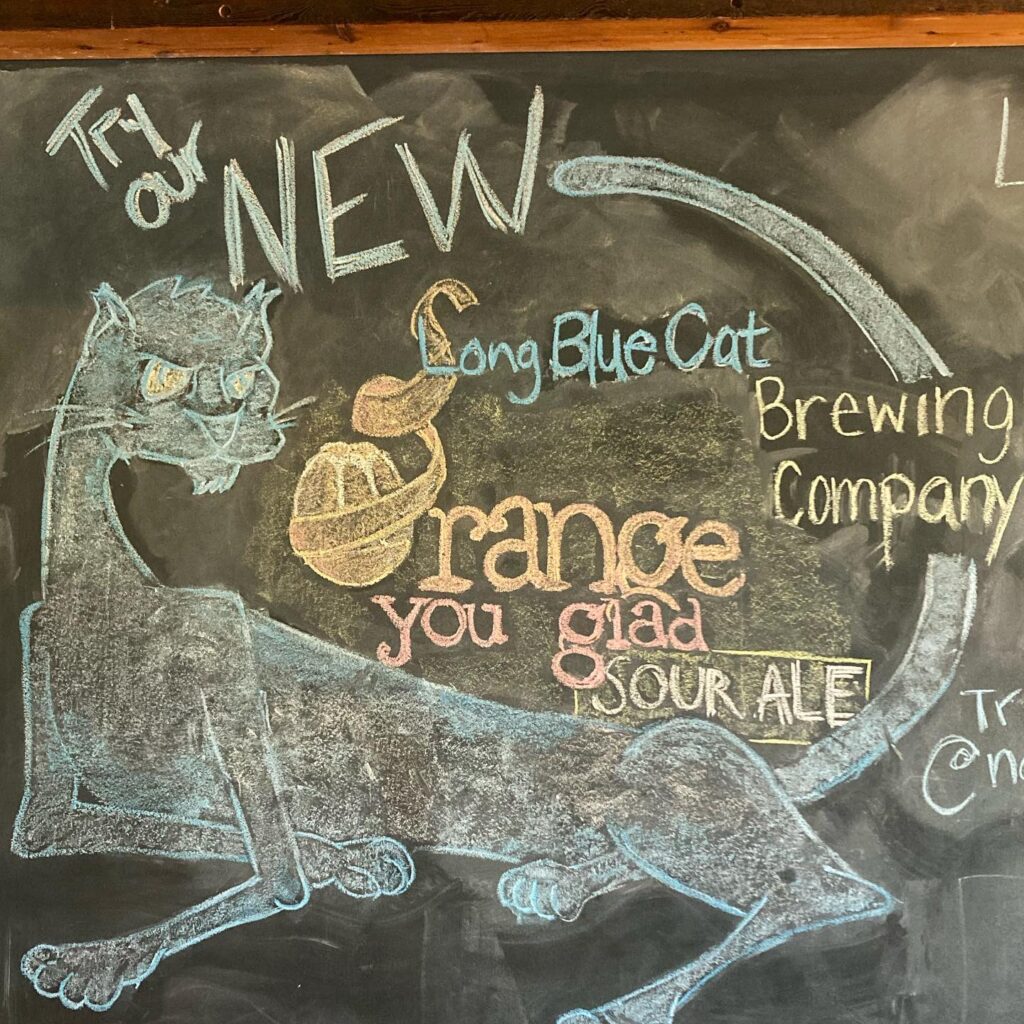 Try
our
NEW
Long Blue Cat
Brewing
Company
Orange
you glad
SOUR ALE